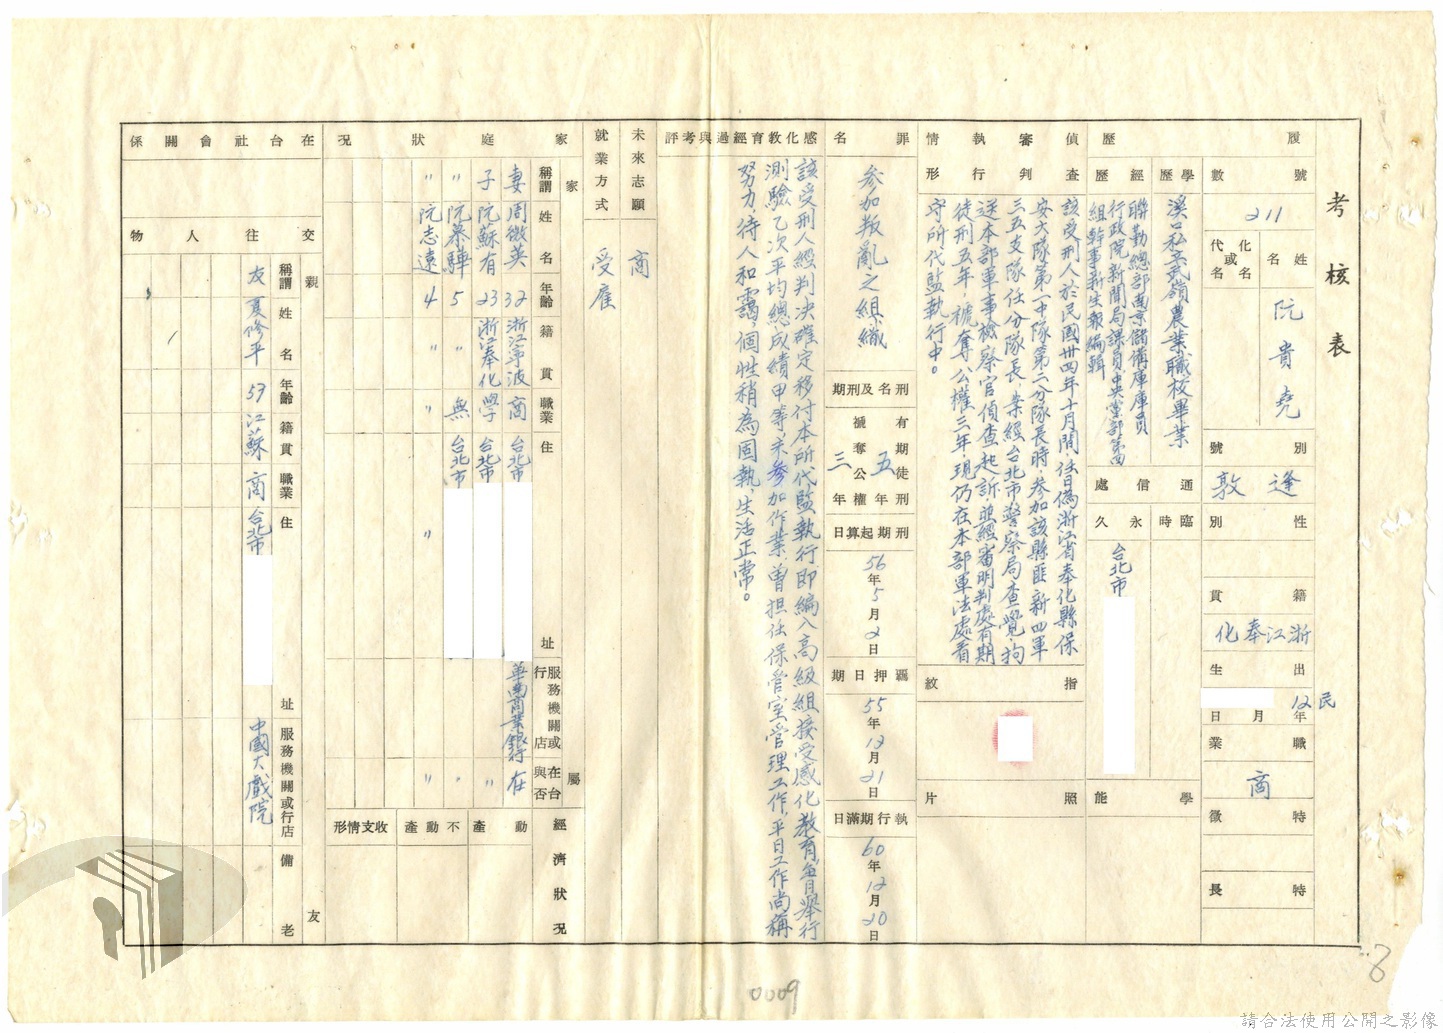 考核表
履歷
號數
211
姓名
阮貴堯
化名或代名
別號
逢敦
性別
籍貫
浙江奉化
出生 年月日
民12
職業
商
特徵
特長
學歷
溪口私立武嶺農業職校畢業
經歷
聯勤總部南京儲備庫庫員
行政院新聞局課員中央黨部第四
組幹事新生報編輯
通信處
臨時
永久
台北市
學能
偵查審判執行情形
該受刑人於民國卅四年十月間任日偽浙江省奉化縣保
安大隊第一中隊第二分隊長時,參加該縣匪新四軍
三五支隊任分隊長,案經台北市警察局查覺,拘
送本部軍事檢察官偵查起訴並經審明判處有期
徒刑五年,褫奪公權三年現仍在本部軍法處看
守所代監執行中。
指紋
照片
罪名
參加叛亂之組織
刑名及刑期
有期徒刑五年
褫奪公權三年
刑期起算日
56年5月2日
羈押日期
55年12月21日
執行期滿日
60年12月20日
感化教育經過與考評
該受刑人經判決確定移付本所代監執行即編入高級組接受感化教育,每月舉行
測驗乙次平均總成績甲等,未參加作業曾担任保管室管理工作,平日工作尚稱
努力待人和靄,個性稍為固執,生活正常。
未來志願
商
就業方式
受雇
家庭狀況
家屬
稱謂 姓名 年齡 籍貫 職業 住址 服務機關或行店 在台與否
妻 周微英 32 浙江寧波 商 台北市 華南商業銀行 在
子 阮蘇有 23 浙江奉化 學 台北市 〃
〃 阮慕驊 5 〃 無 台北市 〃
〃 阮志遠 4 〃 〃 〃 〃
經濟狀況
動產
不動產
收支情形
在台社會關係
交往人物
親友
稱謂 姓名 年齡 籍貫 職業 住址 服務機關或行店 備老
友 夏修平 59 江蘇 商 台北市 中國大戲院
0009
8
請合法使用公開之影像